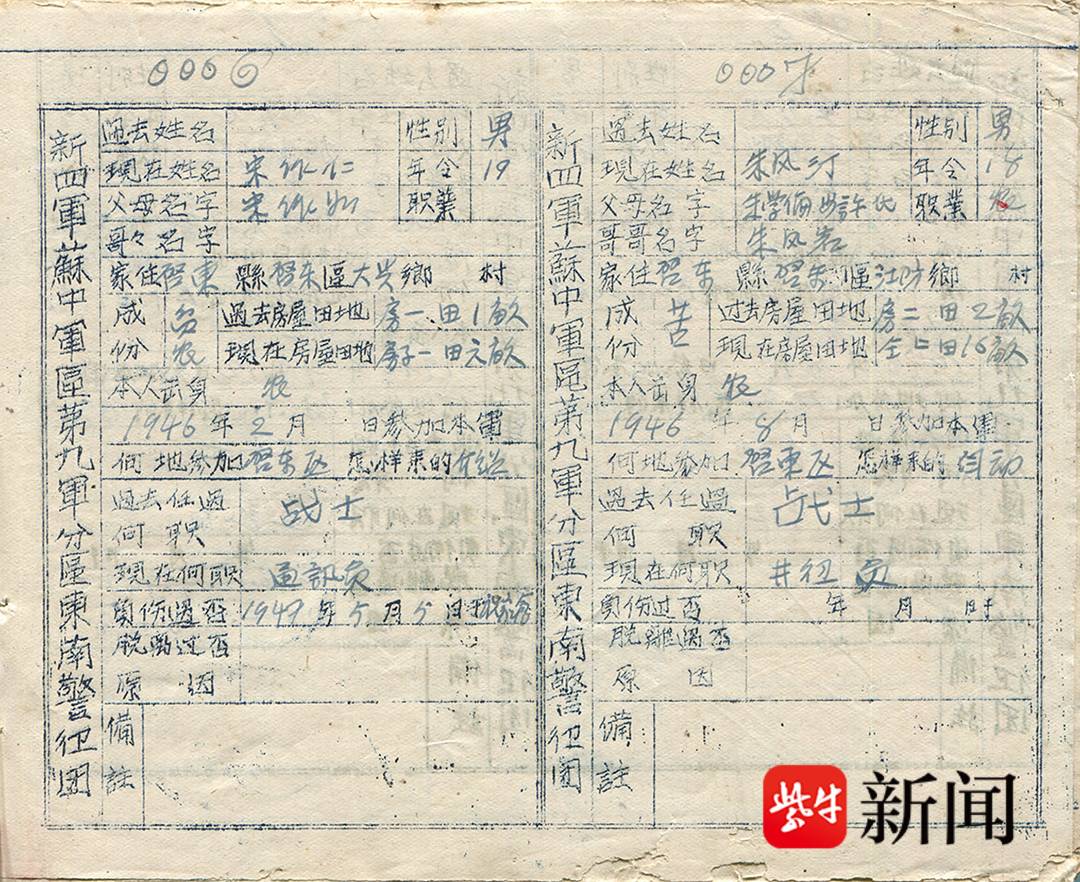 000
新四軍蘇中軍區第九軍分區東南警卫团
過去姓名 性别 男
現在姓名 宋 仁 年令 19
父母名字 宋 职業
哥々名字
家住啓東縣啓东區大兴鄉 村
成份 贫农 過去房屋田地 房一田1畝
現在房屋田地 房子一田 畝
本人出身 农
1946年2月 日参加本軍
何地参加 啓东区 怎样来的 介绍
過去任過何职 战士
現在何职 通訊員
負伤過否 1947年5月5日于
脱离过否
原因
備註
000
新四軍蘇中軍區第九軍分區東南警卫团
過去姓名 性别 男
現在姓名 朱风 年令 18
父母名字 朱学 許氏 职業 农
哥哥名字 朱风
家住啓东縣啓东區江 鄉 村
成份 苦 过去房屋田地 房二田2畝
現在房屋田地 仝上田16畝
本人出身 农
1946年8月 日参加本軍
何地参加 啓東区 怎样来的 自动
過去任過何职 战士
現在何职 員
負伤过否 年 月 日于
脱離過否
原因
備註
紫牛新闻